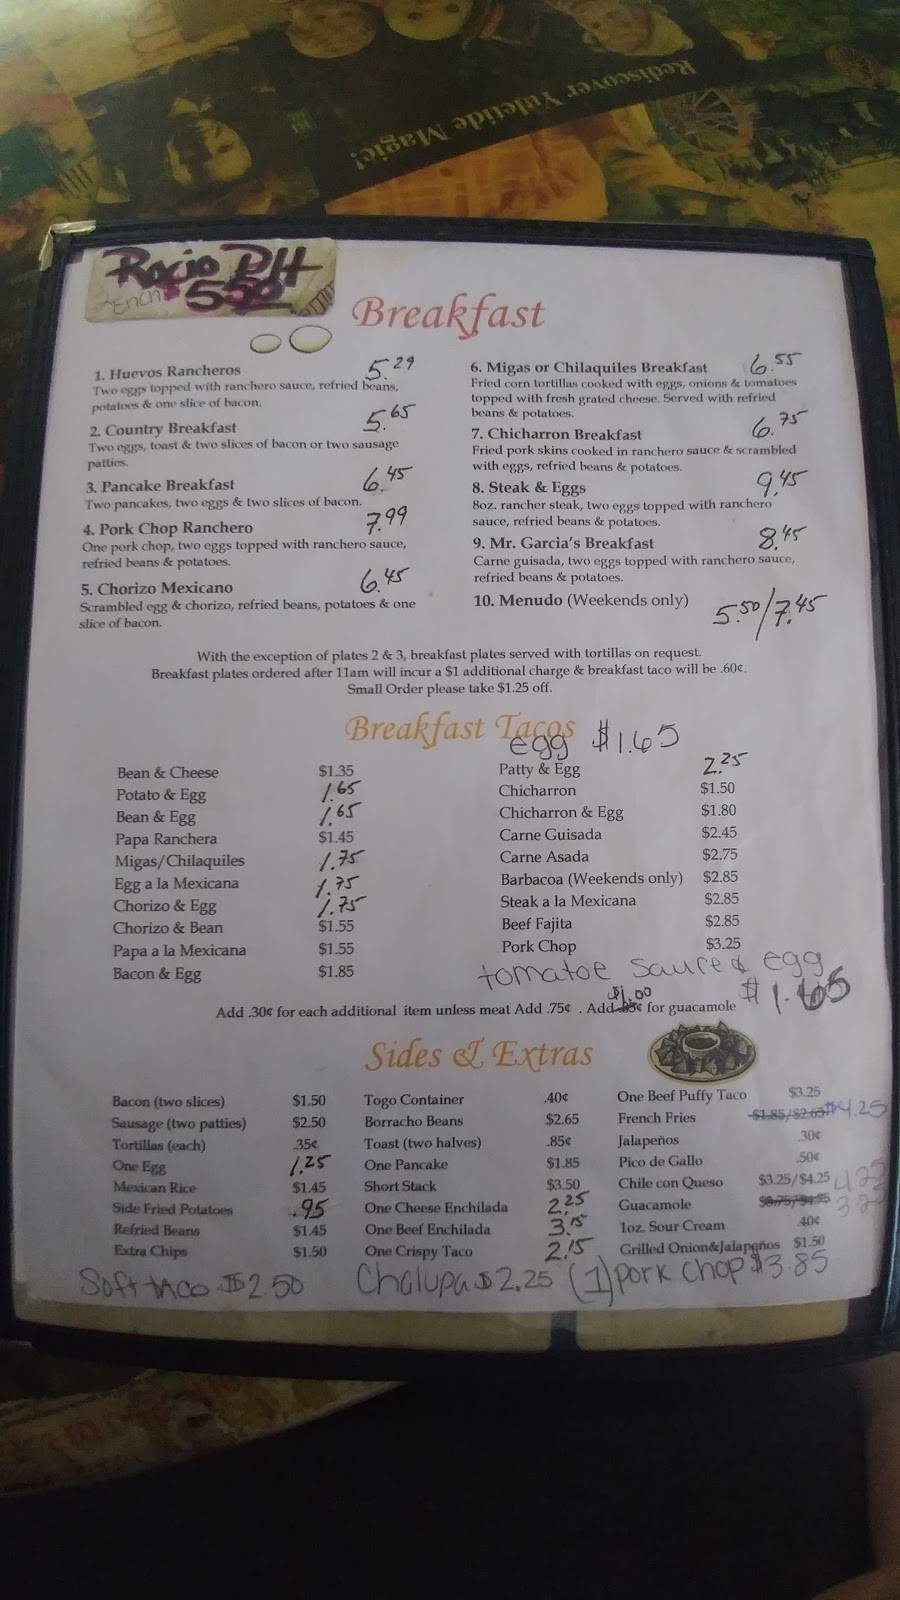 Rediscover Yuletide Magic!
Rocio DH
Ench
550
Breakfast
1. Huevos Rancheros 5.29
Two eggs topped with ranchero sauce, refried beans,
potatoes & one slice of bacon.
2. Country Breakfast 5.65
Two eggs, toast & two slices of bacon or two sausage
patties.
3. Pancake Breakfast 6.45
Two pancakes, two eggs & two slices of bacon.
4. Pork Chop Ranchero 7.99
One pork chop, two eggs topped with ranchero sauce,
refried beans & potatoes.
5. Chorizo Mexicano 6.45
Scrambled egg & chorizo, refried beans, potatoes & one
slice of bacon.
6. Migas or Chilaquiles Breakfast 6.55
Fried corn tortillas cooked with eggs, onions & tomatoes
topped with fresh grated cheese. Served with refried
beans & potatoes.
7. Chicharron Breakfast 6.75
Fried pork skins cooked in ranchero sauce & scrambled
with eggs, refried beans & potatoes.
8. Steak & Eggs 9.45
8oz. rancher steak, two eggs topped with ranchero
sauce, refried beans & potatoes.
9. Mr. Garcia's Breakfast 8.45
Carne guisada, two eggs topped with ranchero sauce,
refried beans & potatoes.
10. Menudo (Weekends only) 5.50/7.45
With the exception of plates 2 & 3, breakfast plates served with tortillas on request.
Breakfast plates ordered after 11am will incur a $1 additional charge & breakfast taco will be .60¢.
Small Order please take $1.25 off.
Breakfast Tacos
egg $1.65
Bean & Cheese $1.35
Potato & Egg 1.65
Bean & Egg 1.65
Papa Ranchera $1.45
Migas/Chilaquiles 1.75
Egg a la Mexicana 1.75
Chorizo & Egg 1.75
Chorizo & Bean $1.55
Papa a la Mexicana $1.55
Bacon & Egg $1.85
Patty & Egg 2.25
Chicharron $1.50
Chicharron & Egg $1.80
Carne Guisada $2.45
Carne Asada $2.75
Barbacoa (Weekends only) $2.85
Steak a la Mexicana $2.85
Beef Fajita $2.85
Pork Chop $3.25
tomatoe saure & egg
$1.65
$1.00
Add .30¢ for each additional item unless meat Add .75¢ . Add .85¢ for guacamole
Sides & Extras
Bacon (two slices) $1.50
Sausage (two patties) $2.50
Tortillas (each) .35¢
One Egg 1.25
Mexican Rice $1.45
Side Fried Potatoes .95
Refried Beans $1.45
Extra Chips $1.50
Togo Container .40¢
Borracho Beans $2.65
Toast (two halves) .85¢
One Pancake $1.85
Short Stack $3.50
One Cheese Enchilada 2.25
One Beef Enchilada 3.15
One Crispy Taco 2.15
One Beef Puffy Taco $3.25
French Fries $1.85/$2.65 $4.25
Jalapeños .30¢
Pico de Gallo .50¢
Chile con Queso $3.25/$4.25
Guacamole
1oz. Sour Cream .40¢
Grilled Onion&Jalapeños $1.50
Soft taco $2.50 Chalupa $2.25 (1) pork chop $3.85